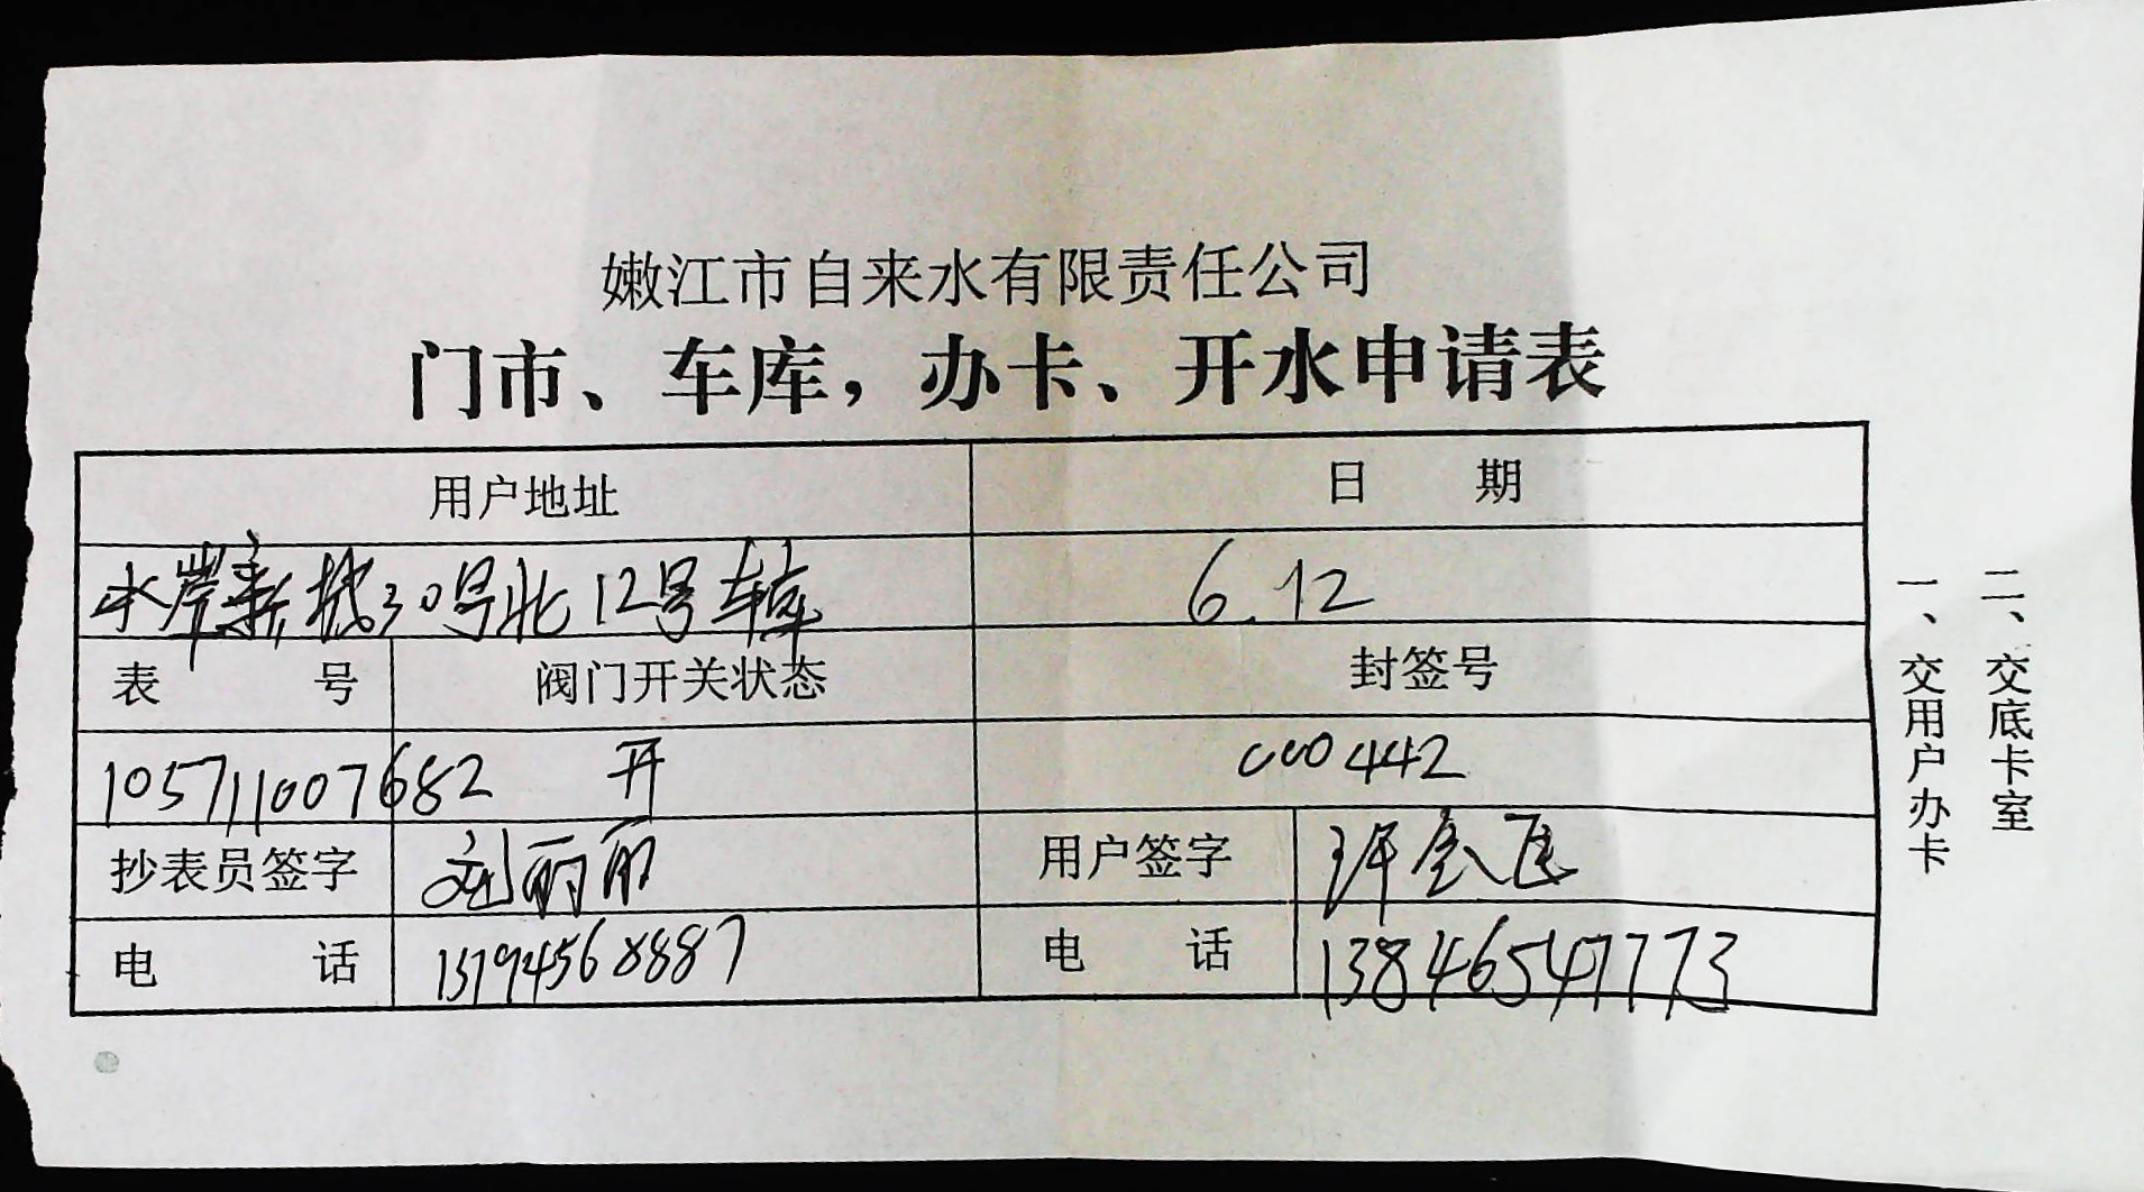 嫩江市自来水有限责任公司
门市、车库，办卡、开水申请表
用户地址 日 期
水岸新城30号北12号车库 6.12
表 号 阀门开关状态 封签号
105711007682 开 000442
抄表员签字 刘丽丽 用户签字
电 话 13794568887 电 话 13846547773
一、交用户办卡
二、交底卡室